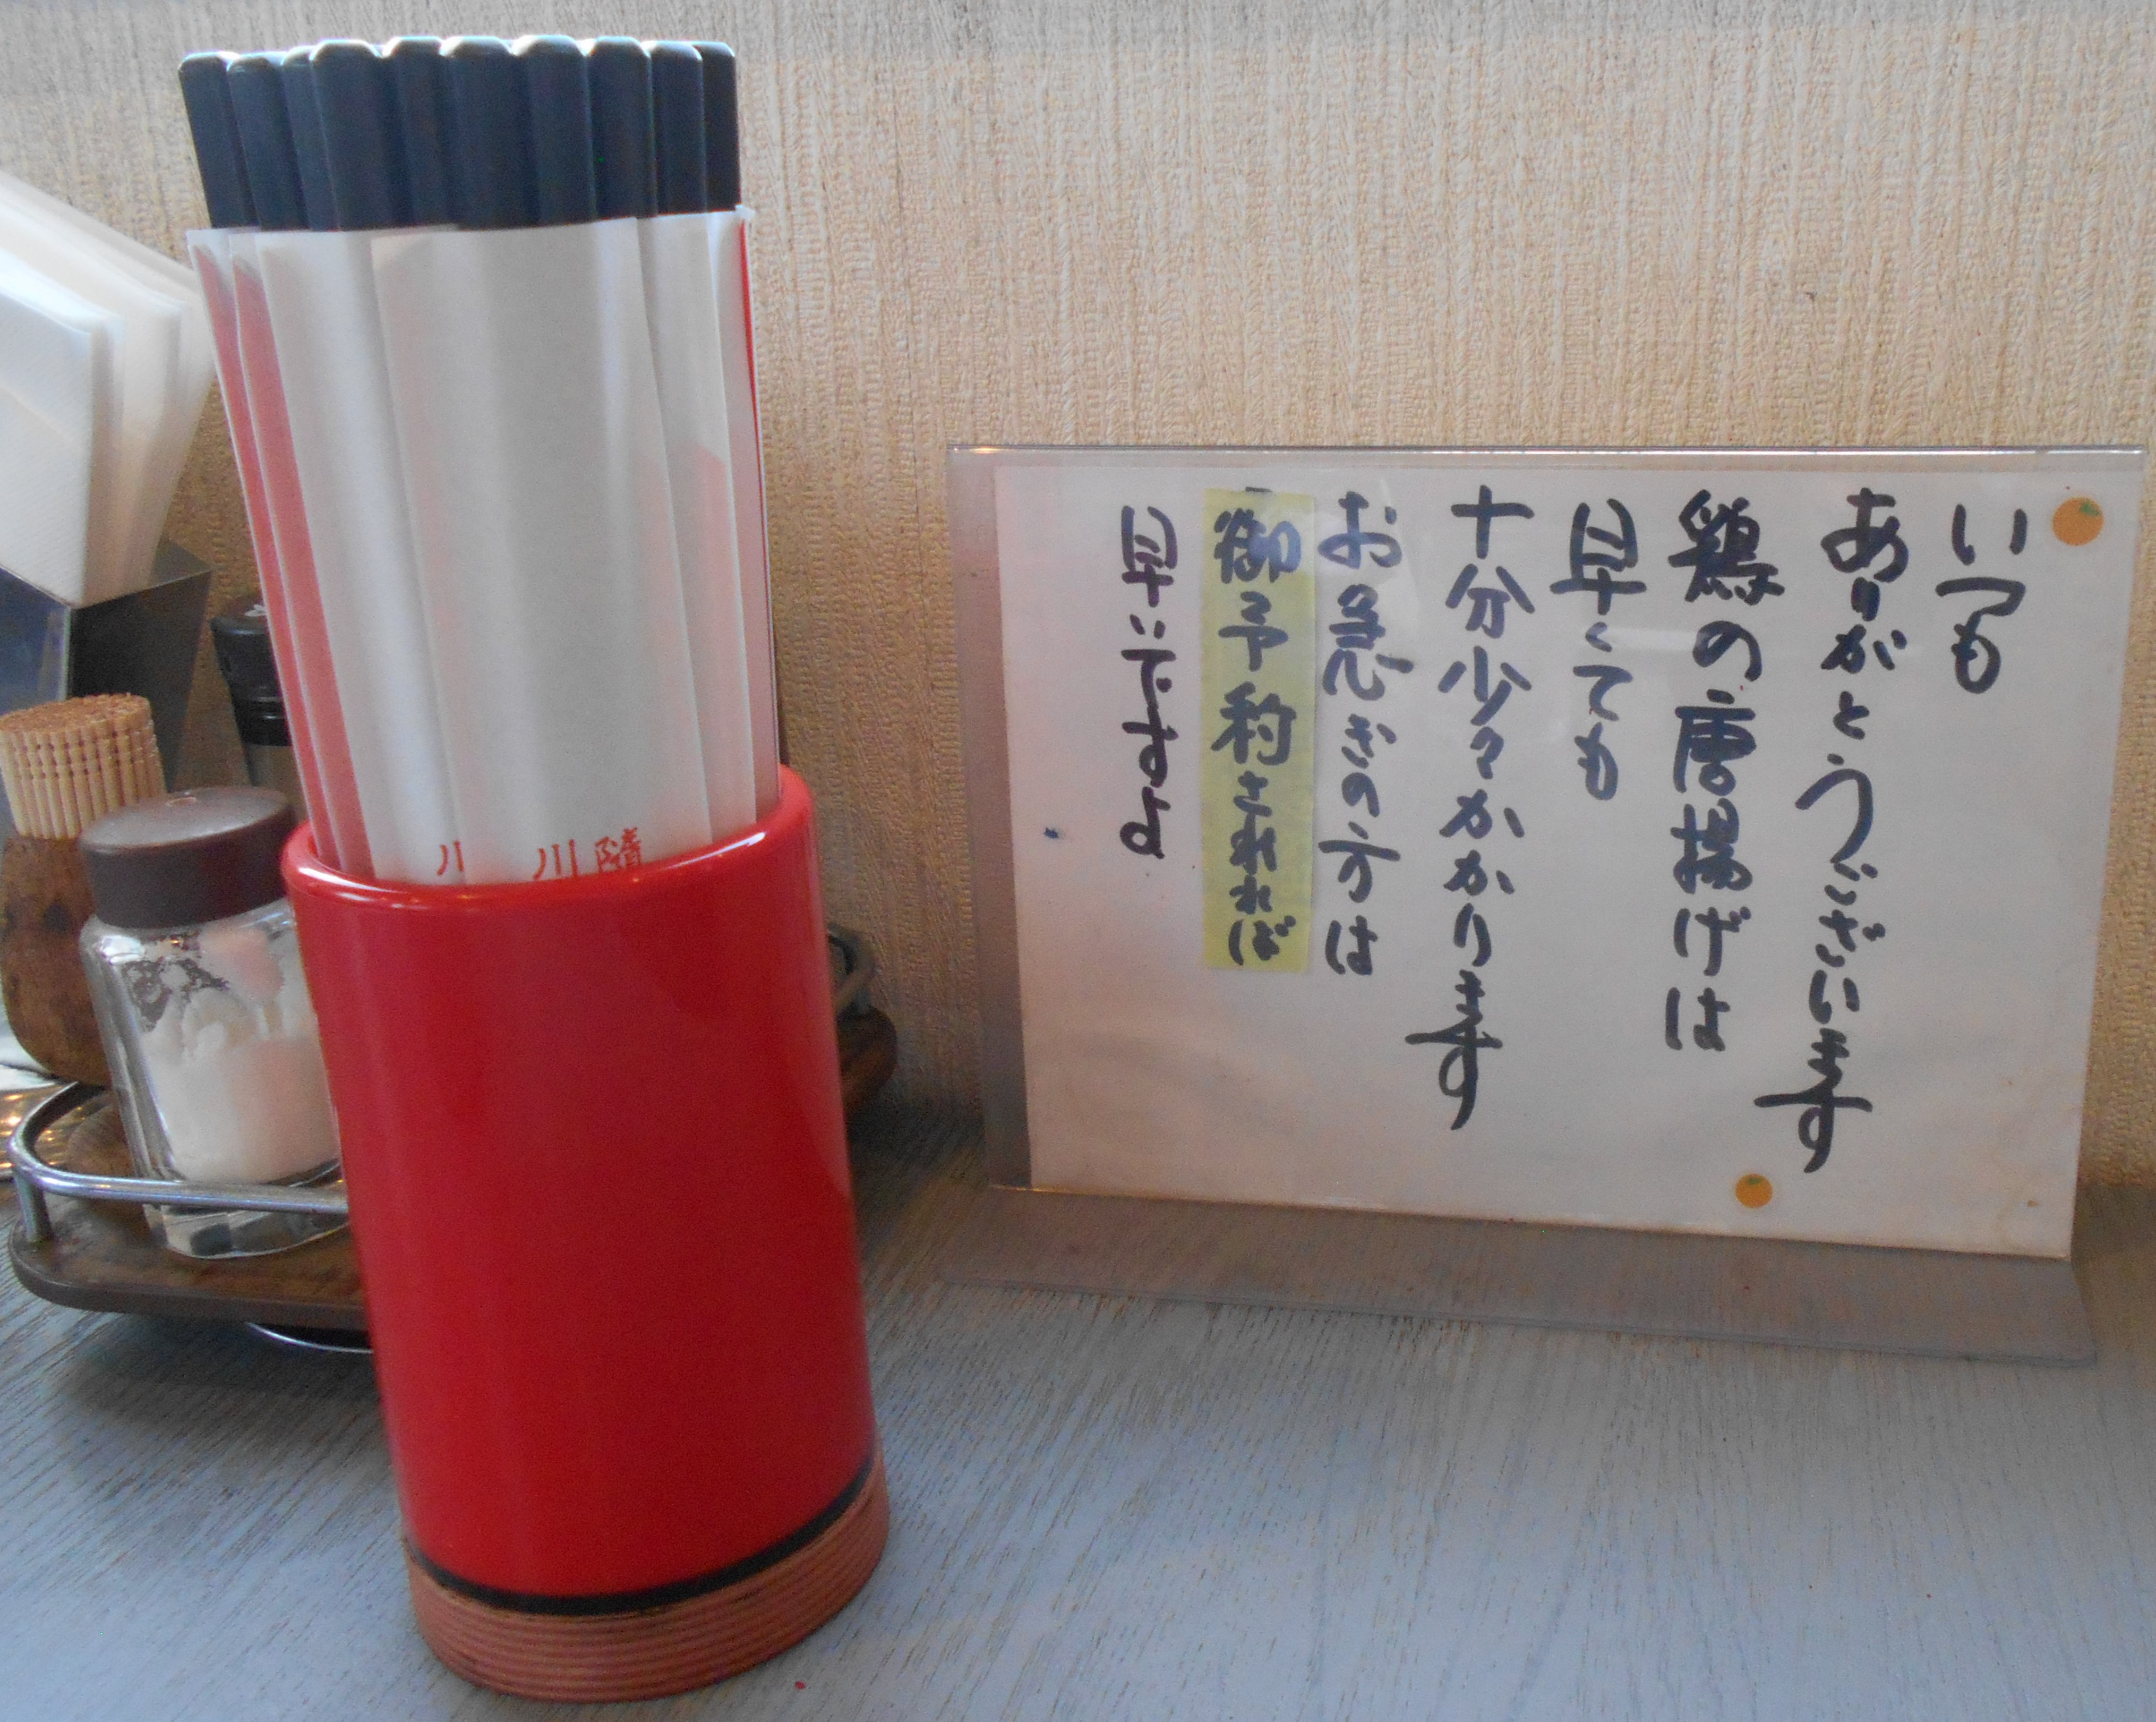 いつも
ありがとうございます
鶏の唐揚げは
早くても
十分少々かかります
お急ぎの方は
御予約されれば
早いですよ